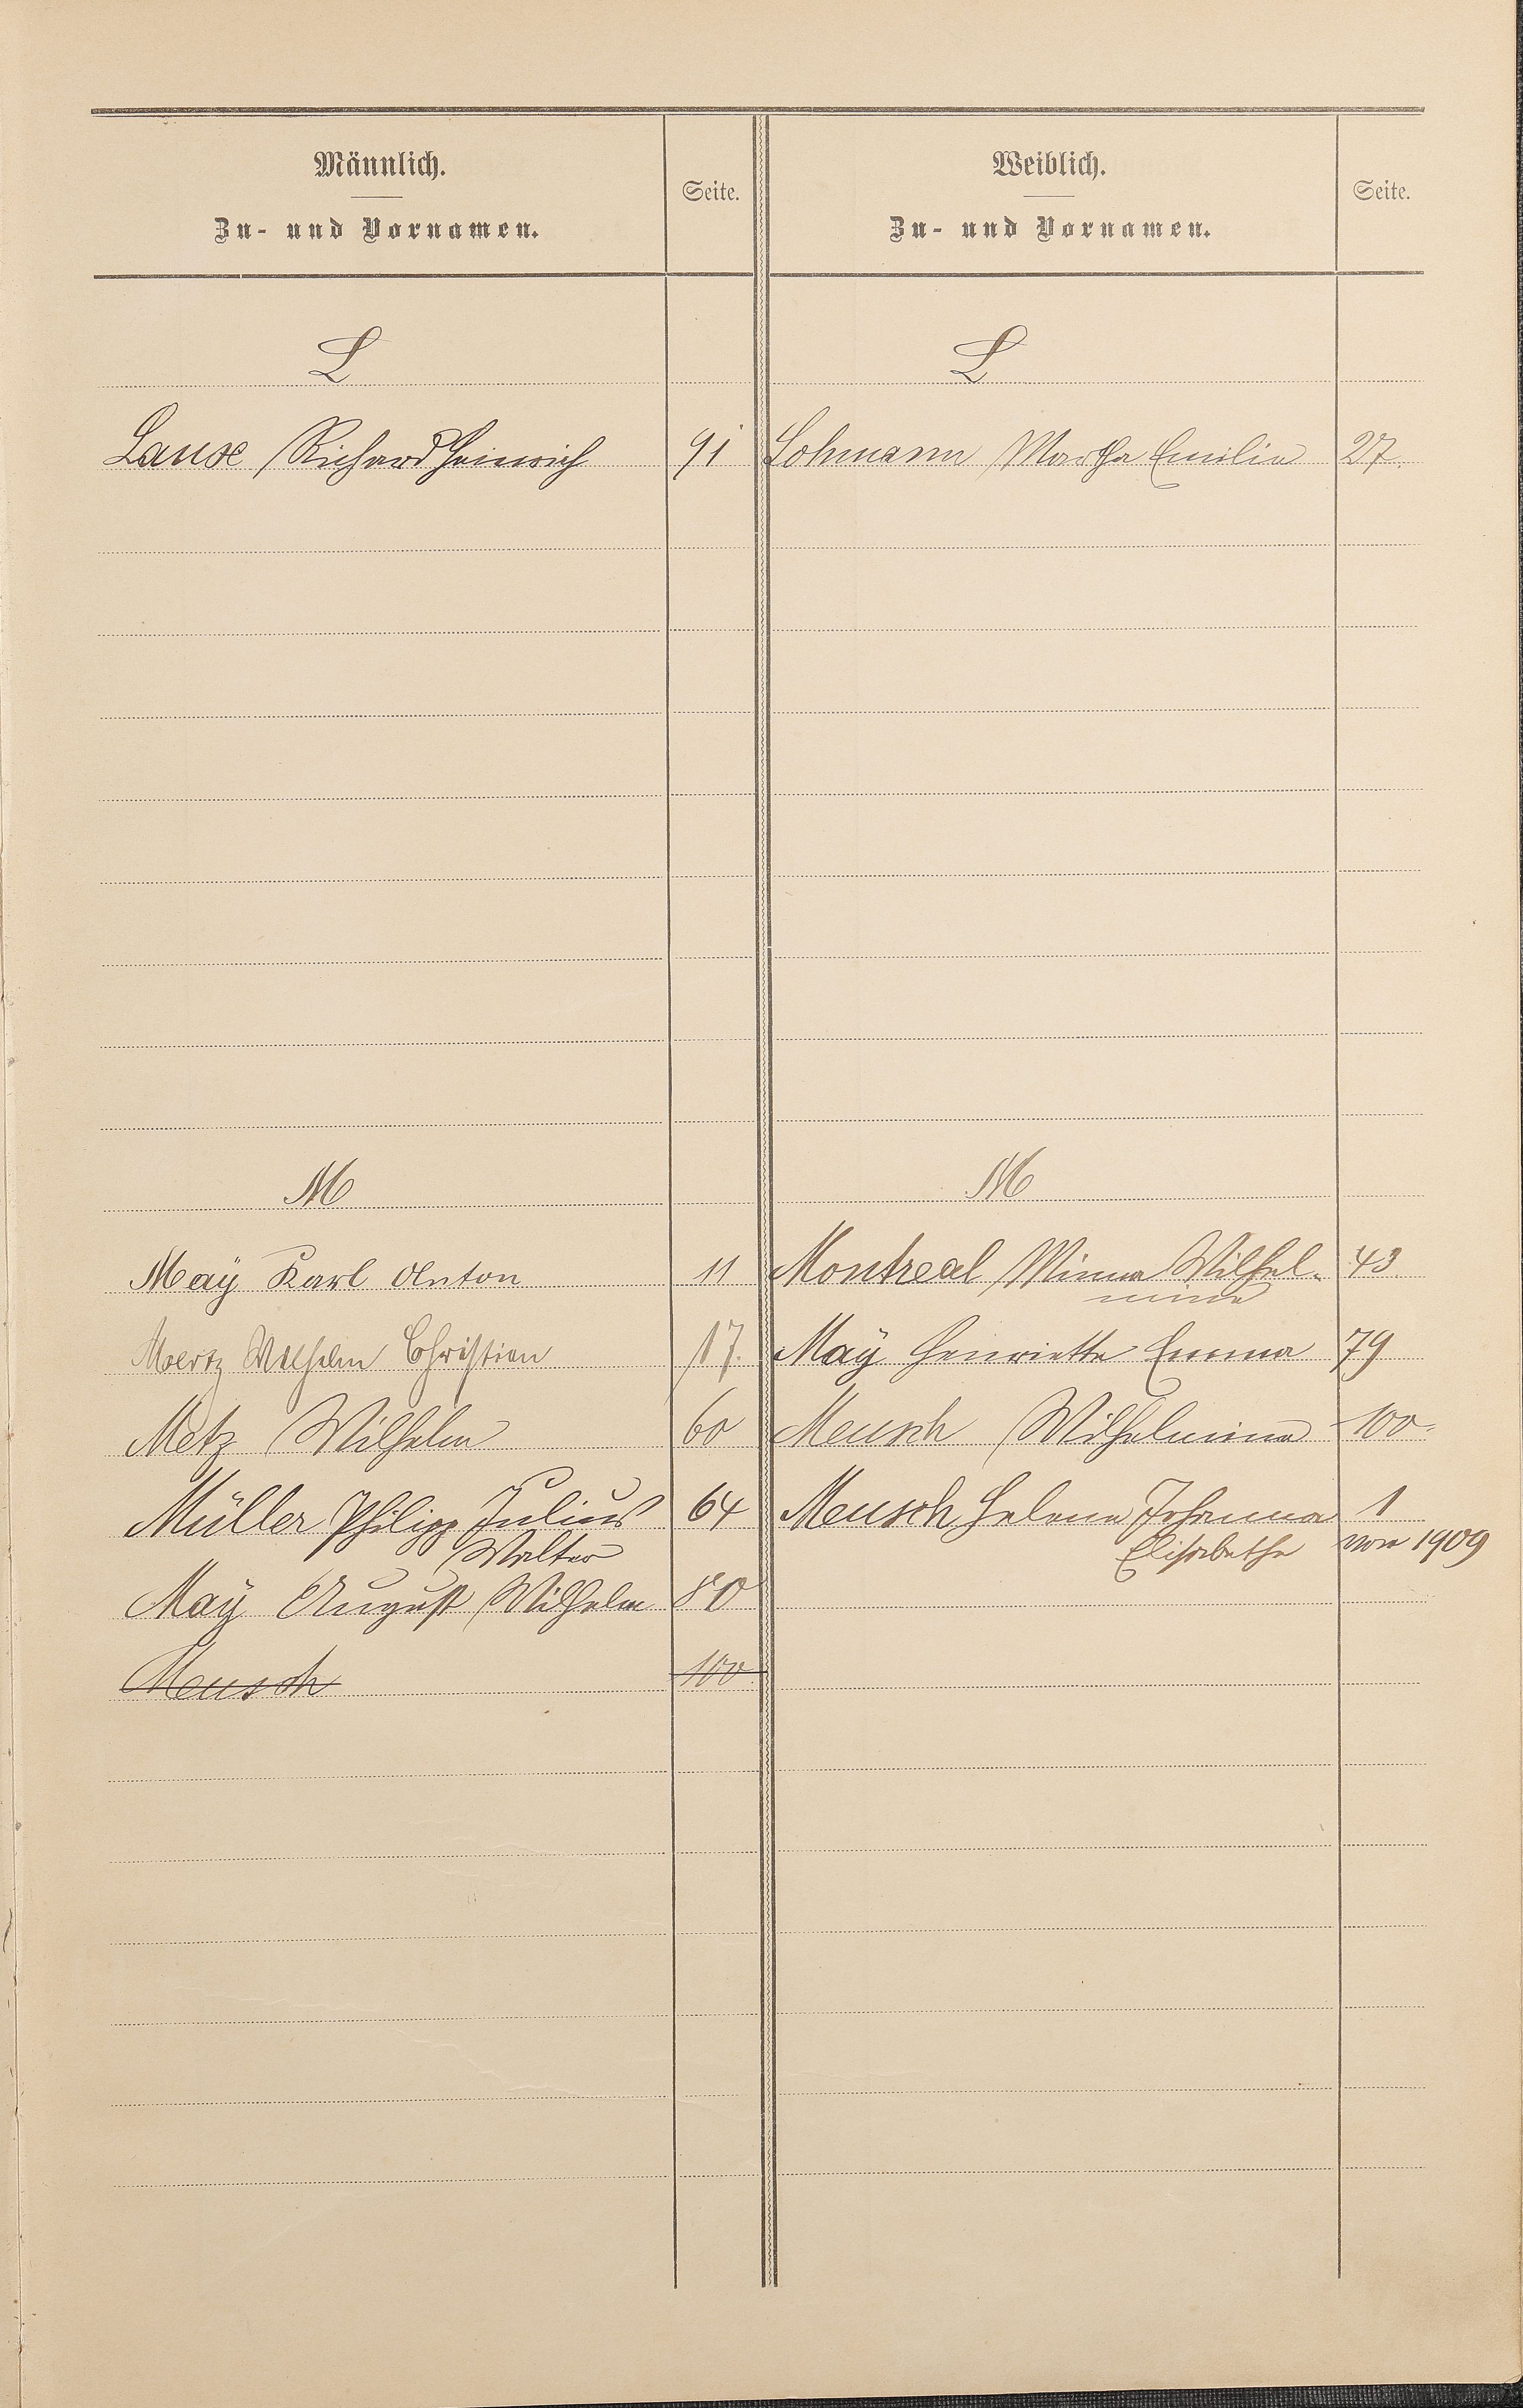 Männlich.
Zu- und Vornamen.
Seite.
Weiblich.
Zu- und Vornamen.
Seite.
L
L
Laux Richard Heinrich 91
Lohmann Martha Emilie 27.
M
M
Maÿ Karl Anton 11
Montreal Minna Wilhel- 43.
mine
Wilhelm Christian 17.
Maÿ Henriette Emma 79
Metz Wilhelm 60
Meusch Wilhelmine 100.
Müller Philipp Julius 64
Walter
Meusch Helene Johanna 1
Elisabethe von 1909
Maÿ August Wilhelm 80
Meusch 100.